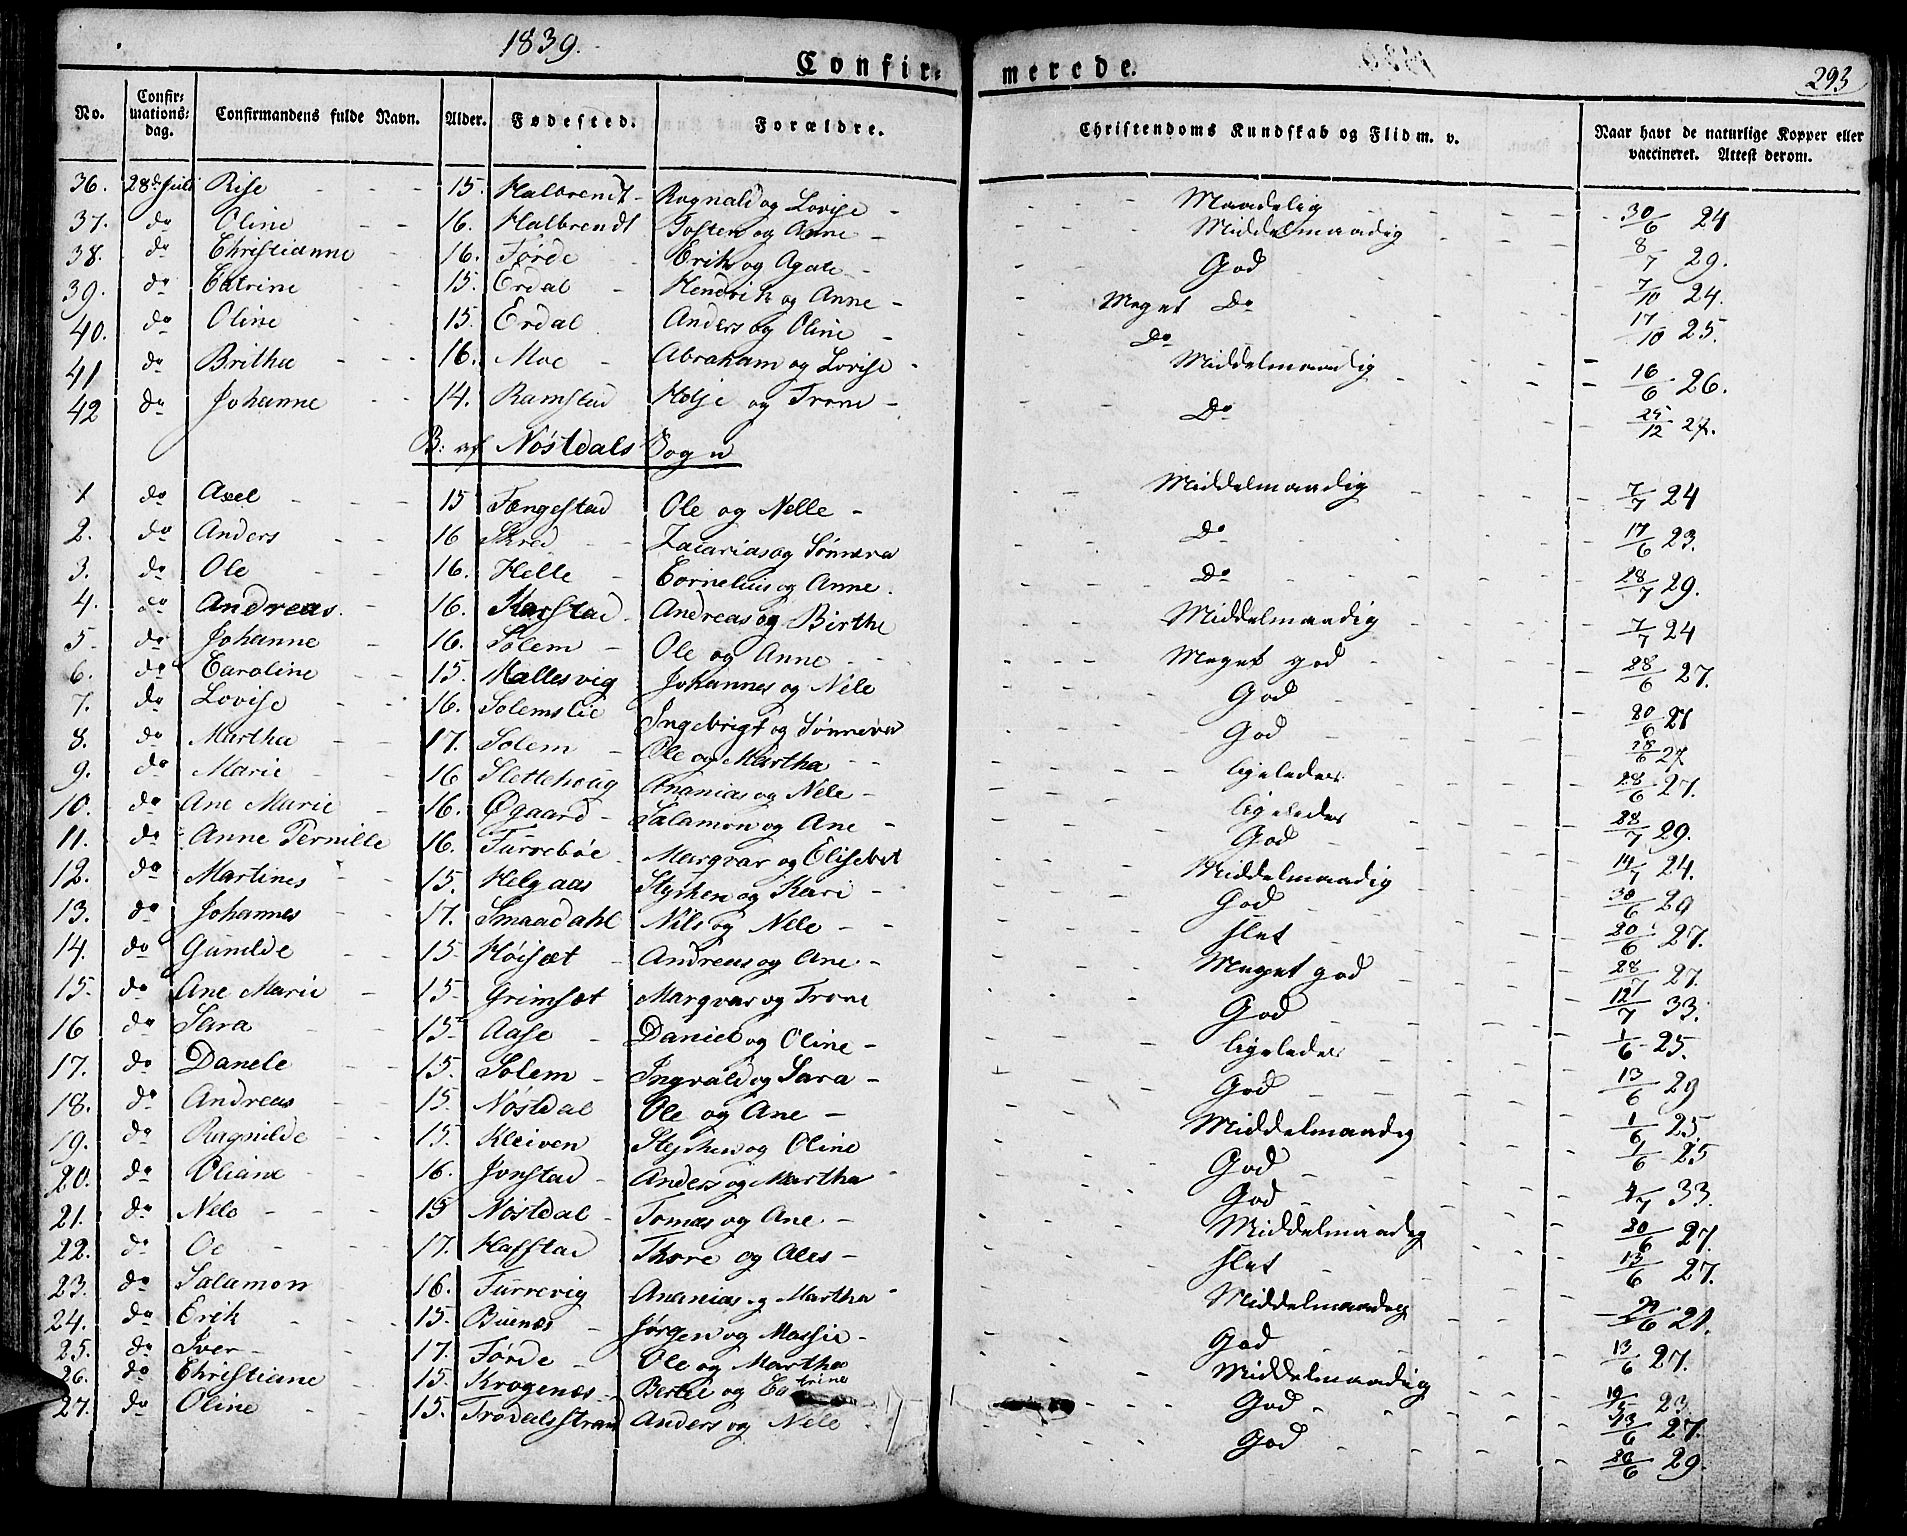 1839.
Confirmerede.
293
No. Confirmationsdag. Confirmandens fulde Navn. Alder. Fødested. Forældre. Christendoms Kundskab og Flid m. v. Naar havt de naturlige Kopper eller vaccineret. Attest derom.
36. 28de Juli Rise 15. Halbrendt Ragnald og Lovise Maadelig 30/6 24
37. do Oline 16. Halbrendt Tosten og Anne Middelmaadig 8/7 29.
38. do Christianne 16. Førde Erik og Agate God 7/10 24.
39. do Catrine 15. Erdal Hendrik og Anne Meget Do 17/10 25.
40. do Oline 15. Erdal Anders og Oline Do
41 do Britha 16. Moe Abraham og Lovise Middelmaadig 16/6 26.
42 do Johanne 14. Ramstad Helje og Trone Do 25/12 27.
B: af Nøstdals Sogn
1 do Axel 15 Fængestad Ole og Nelle Middelmaadig 7/7 24
2. do Anders 16 Skred Zacarias og Sønneva Do 17/6 23.
3. do Ole 16. Helle Cornelius og Anne. Do 28/7 29.
4. do Andreas. 16. Karstad Andreas og Birthe Middelmaadig 7/7 24
5. do Johanne 16. Solem Ole og Anne Meget god 28/6 27.
6. do Caroline 15. Kallesvig Johannes og Nele God 20/6 21
7. do Lovise 16. Solemslie Ingebrigt og Sønneva God 28/6 27
8. do Martha 17. Solem Ole og Martha ligeledes 28/6 27.
9. do Marie 16 Slettehoug Ananias og Nele ligeledes 28/7 29.
10. do Ane Marie 16. Øgaard Salamon og Ane God 14/7 24.
11. do Anne Pernille 16. Furrebøe Margvar og Elisebet Middelmaadig 30/6 29
12. do Martines 15. Helgaas Styrken og Kari God 20/6 27.
13. do Johannes 17. Smaadahl Nils og Nele slet 28/7 27.
14. do Gunilde 15 Høisæt Andreas og Ane Meget god 12/7 33.
15. do Ane Marie 15. Grimsæt Margvar og Trone God 1/6 25.
16 do Sara 15. Aase Daniel og Oline ligeledes 13/6 29
17. do Danele 15. Solem Ingvald og Sara God 1/6 25
18. do Andreas 15. Nøstdal Ole og Ane Middelmaadig 1/6 25
19. do Ragnilde 15. Kleiven Styrken og Oline God 4/7 33.
20. do Oliane 16. Jonstad Anders og Martha God 20/6 27.
21. do Nels 15 Nøstdal Tomas og Ane Middelmaadig 13/6 27.
22. do Ole 17. Hafstad Thore og Ales slet
23. do Salamon 16. Furrevig Ananias og Martha Middelmaadig 21.
24. do Erik 15. Buenæs Jørgen og Massie God 13/6 27.
25. do Iver 17. Førde Ole og Martha Middelmaadig 23
26. do Christiane 15. Krogenæs Bertel og Catrine God 13/6 27.
27. do Oline 15. Trodalsstrand Anders og Nele God 26/6 29.